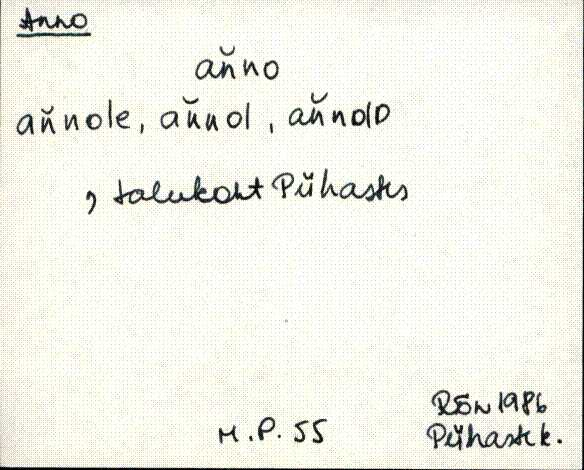 Anno
an̆no
an̆nole, an̆nol, an̆nolD
, talukoht Pühastes
M.P. 55
Rõn 1986
Pühaste k.